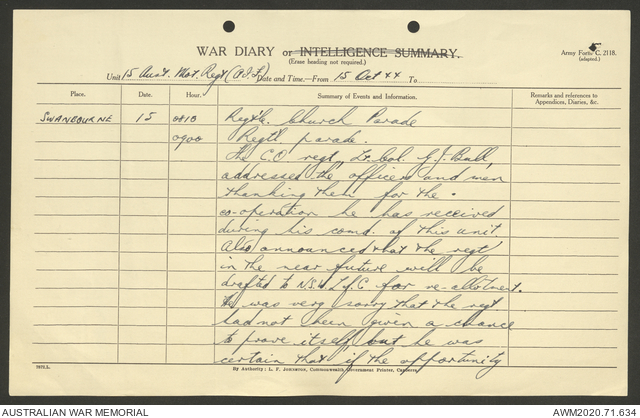 WAR DIARY or INTELLIGENCE SUMMARY.
(Erase heading not required.)
Army Form C. 2118.
(adapted.)
Unit 15 Aust. Mot. Regt (A.I.F.) Date and Time.—From 15 Oct 44 To
Place. Date. Hour. Summary of Events and Information. Remarks and references to Appendices, Diaries, &c.
SWANBOURNE 15 0810 Regtl. Church Parade
0900 Regtl parade.
The C.O regt, Lt. Col. G.J. Bull,
addressed the officers and men
thanking them for the
co-operation he has received
during his comd. of this unit.
Also announced that the regt
in the near future will be
drafted to N.S.W. L of C for re-allotment.
He was very sorry that the regt
had not been given a chance
to prove itself, but he was
certain that if the opportunity
By Authority: L. F. Johnston, Commonwealth Government Printer, Canberra
AUSTRALIAN WAR MEMORIAL AWM2020.71.634